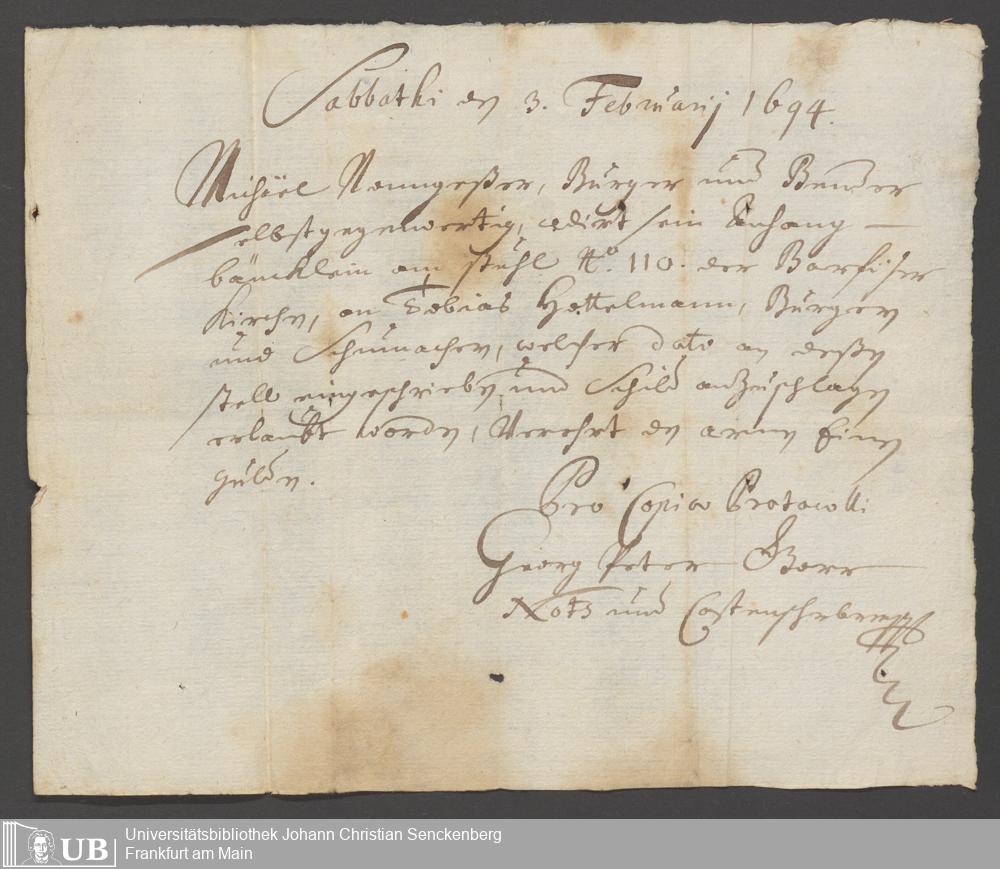 Sabbathi den 3. Februarij 1694.
Michäel Nonngeßer, Bürger und Bender
selbst gegenwertig, cedirt sein Anhang
bäncklein am stuhl No. 110. der Barfüser
Kirchen, an Tobias Hettelmann, Bürgern
und Schumachern, welcher dato an deßen
stell eingeschrieben und Schild anzuschlagen
erlaubt worden, Verehrt den armen Einen
gulden.
Pro Copia Protocolli
Georg Peter
Nots und Castenschreiber
Universitätsbibliothek Johann Christian Senckenberg
UB Frankfurt am Main